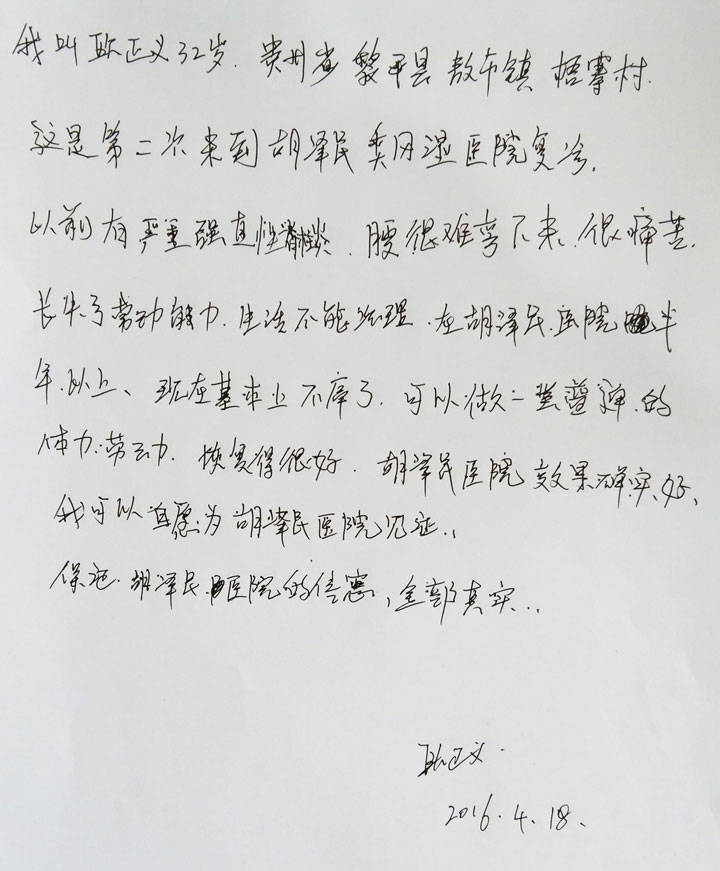 我叫欧正义32岁.贵州省黎平县敖市镇梧寨村.
这是第二次来到胡泽民类风湿医院复诊.
以前有严重强直性脊柱炎.腰很难弯下来.很痛苦.
长失了劳动能力.生活不能治理.在胡泽民.医院 半
年.以上、现在基本上不痛了.可以做一些普通的
体力.劳动力.恢复得很好.胡泽民医院效果确实好、
我可以自愿为胡泽民医院见证..
保证.胡泽民.医院的信息,全部真实..
欧正义.
2016.4.18.